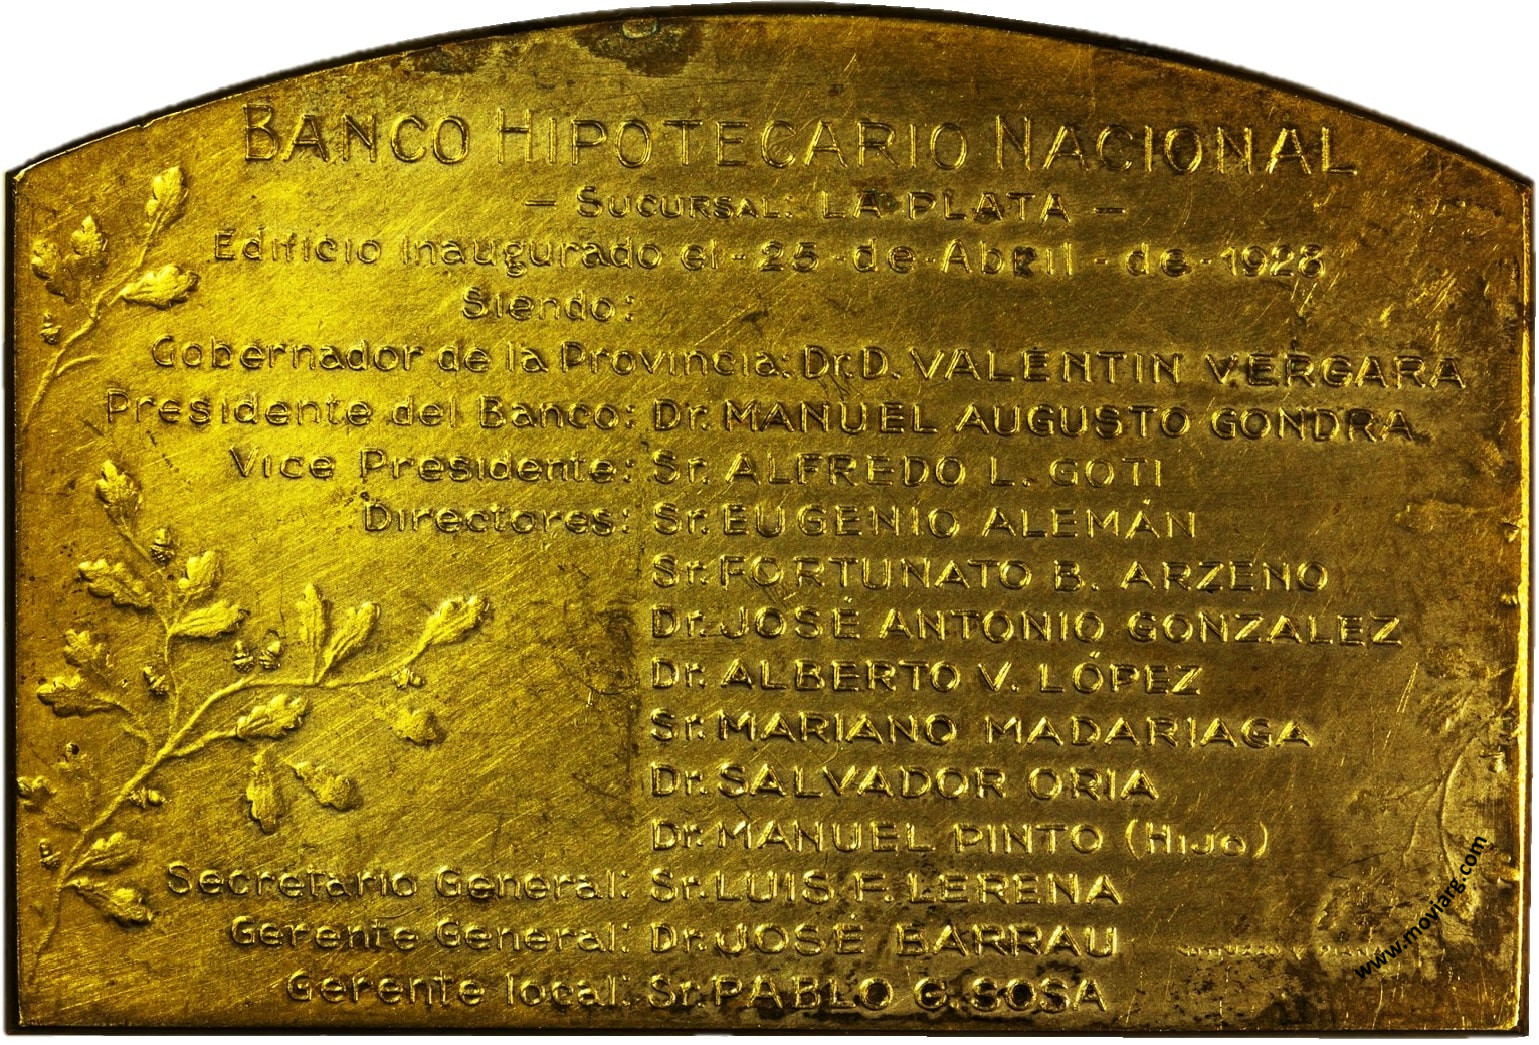 BANCO HIPOTECARIO NACIONAL
- SUCURSAL: LA PLATA -
Edificio Inaugurado el - 25 - de - Abril - de - 1928
Siendo:
Gobernador de la Provincia: Dr. D. VALENTIN VERGARA
Presidente del Banco: Dr. MANUEL AUGUSTO GONDRA
Vice Presidente: Sr. ALFREDO L. GOTI
Directores: Sr. EUGENIO ALEMÁN
Sr. FORTUNATO B. ARZENO
Dr. JOSÉ ANTONIO GONZALEZ
Dr. ALBERTO V. LÓPEZ
Sr. MARIANO MADARIAGA
Dr. SALVADOR ORIA
Dr. MANUEL PINTO (HIJO)
Secretario General: Sr. LUIS F. LERENA
Gerente General: Dr. JOSÉ BARRAU
Gerente local: Sr. PABLO G. SOSA
www.moviarg.com